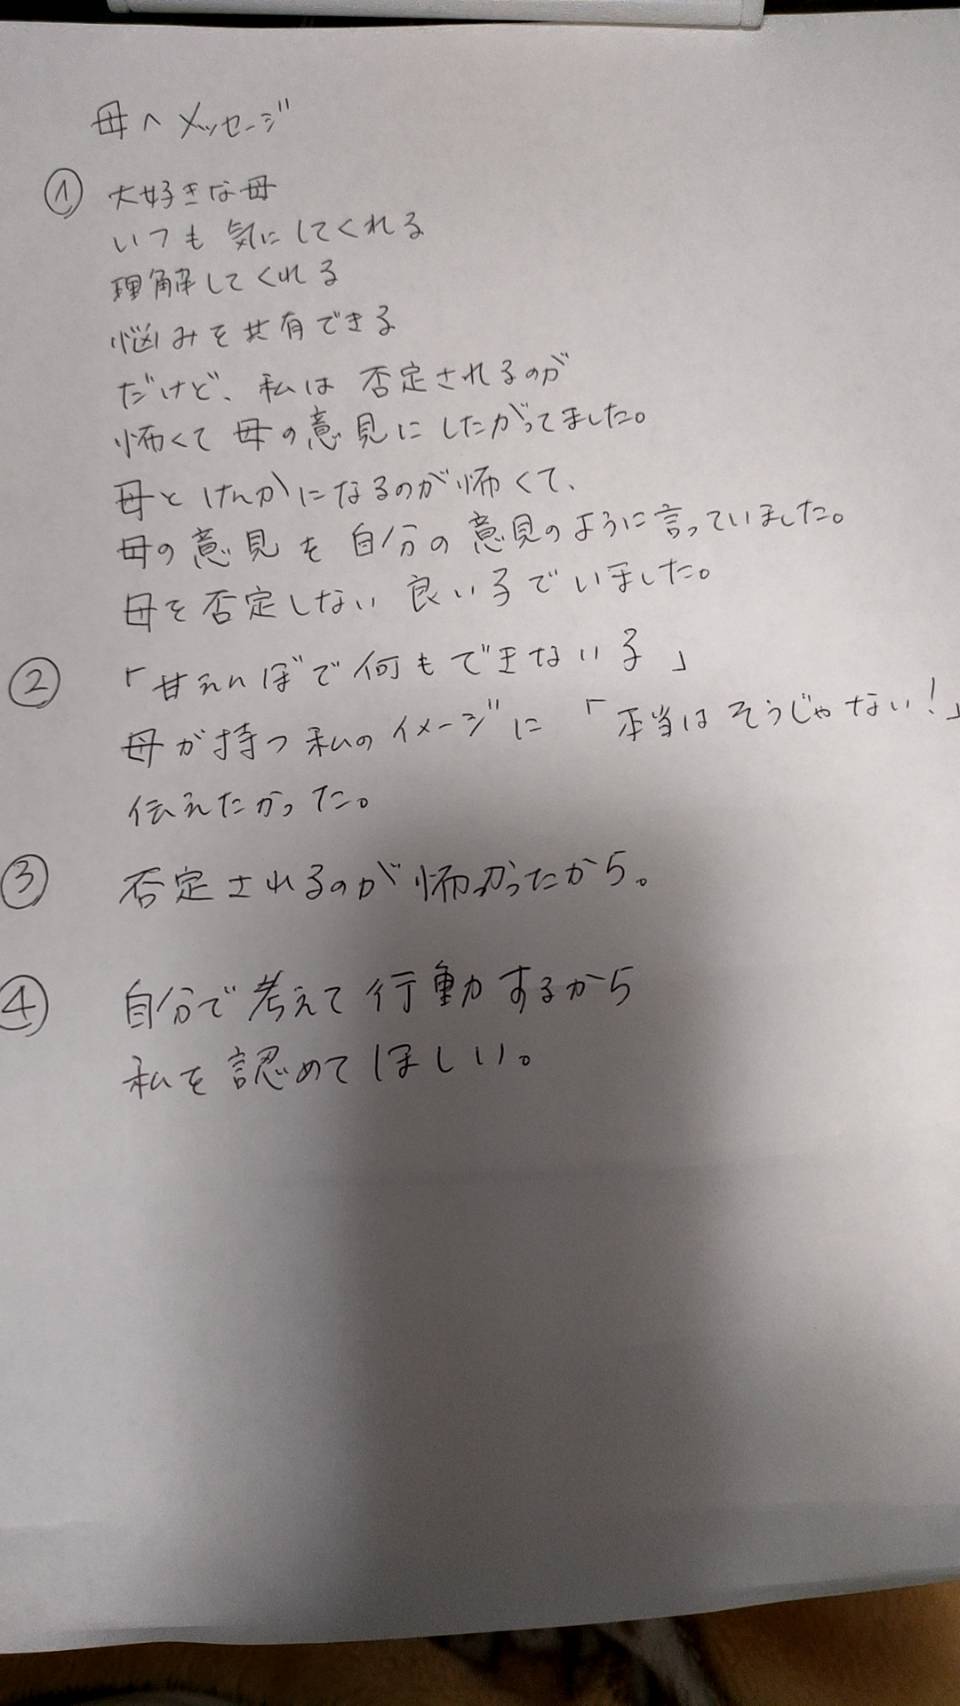 母へメッセージ
① 大好きな母
いつも気にしてくれる
理解してくれる
悩みを共有できる
だけど、私は否定されるのが
怖くて母の意見にしたがってました。
母とけんかになるのが怖くて、
母の意見を自分の意見のように言っていました。
母を否定しない良い子でいました。
② 「甘えんぼで何もできない子」
母が持つ私のイメージに「本当はそうじゃない!」
伝えたかった。
③ 否定されるのが怖かったから。
④ 自分で考えて行動するから
私を認めてほしい。